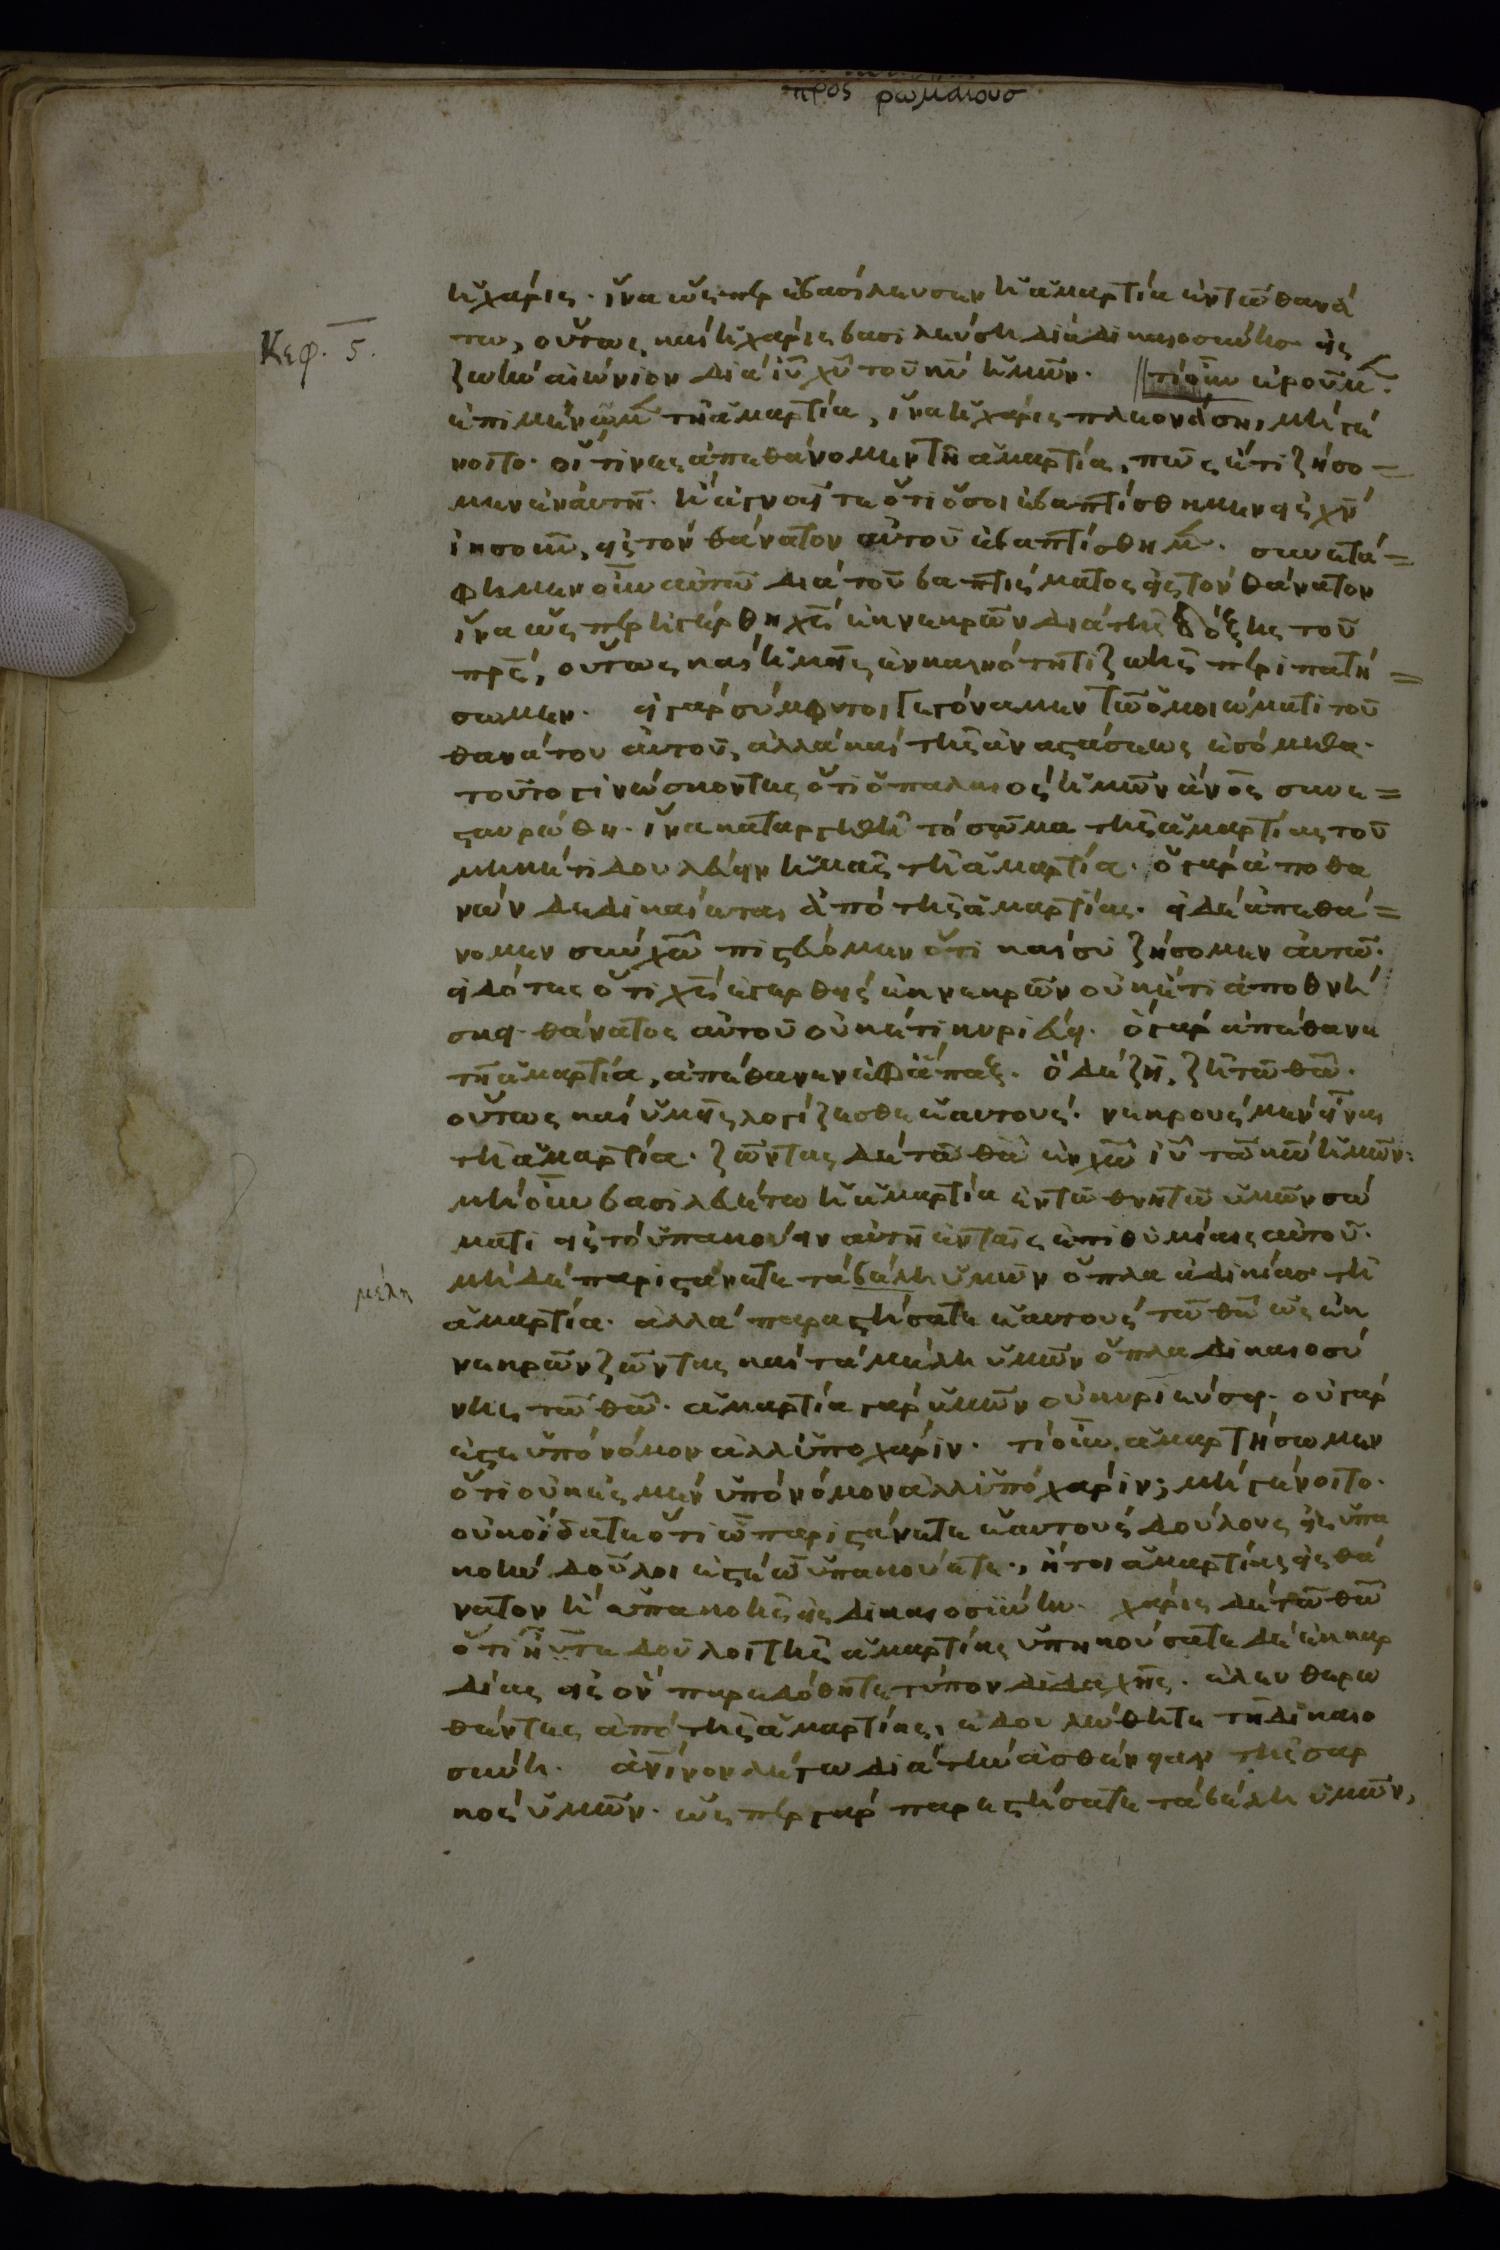 προς ρωμαιουσ
ἡ χάρις· ἵνα ὥςπερ ἐβασίλευσεν ἡ ἁμαρτία ἐν τῶ θανά
Κεφ. ς.
τω, οὕτως καὶ ἡ χάρις βασιλεύση διὰ δικαιοσύνης εἰς
ζωὴν αἰώνιον διὰ ἰῦ χῦ τοῦ κῦ ἡμῶν. τί οὖν ἐροῦμ̅.
ἐπιμένωμ̅ τῆ ἁμαρτία, ἵνα ἡ χάρις πλεονάση, μὴ γέ
νοιτο· οἵτινες ἀπεθάνομεν τῆ ἁμαρτία, πῶς ἔτι ζήσο=
μεν ἐν αὐτῆ. ἢ ἀγνοεῖτε ὅτι ὅσοι ἐβαπτίσθημεν εἰς χν̅
ἰησοῦν, εἰς τὸν θάνατον αὐτοῦ ἐβαπτίσθημ̅. συνετά=
φημεν οὖν αὐτῶ διὰ τοῦ βαπτίσματος εἰς τὸν θάνατον
ἵνα ὥςπερ ἠγέρθη χς̅ ἐκ νεκρῶν διὰ τῆς δόξης τοῦ
πρς̅, οὕτως καὶ ἡμεῖς ἐν καινότητι ζωῆς περιπατή=
σωμεν. εἰ γὰρ σύμφυτοι γεγόναμεν τῶ ὁμοιώματι τοῦ
θανάτου αὐτοῦ, ἀλλὰ καὶ τῆς ἀναστάσεως ἐσόμεθα·
τοῦτο γινώσκοντες ὅτι ὁ παλαιὸς ἡμῶν ἄνος̅ συνε=
σταυρώθη· ἵνα καταργηθῆ τὸ σῶμα τῆς ἁμαρτίας τοῦ
μηκέτι δουλεύειν ἡμᾶς τῆ ἁμαρτία. ὁ γὰρ ἀποθα
νὼν δεδικαίωται ἀπὸ τῆς ἁμαρτίας. εἰ δὲ ἀπεθά=
νομεν σὺν χω̅ πιστεύομεν ὅτι καὶ συζήσομεν αὐτῶ.
εἰδότες ὅτι χς̅ ἐγερθεὶς ἐκ νεκρῶν οὐκέτι ἀποθνή
σκει· θάνατος αὐτοῦ οὐκέτι κυριεύει. ὃ γὰρ ἀπέθανε
τῆ ἁμαρτία, ἀπέθανεν ἐφάπαξ. ὃ δὲ ζῆ, ζῆ τῶ θω̅.
οὕτως καὶ ὑμεῖς λογίζεσθε ἑαυτοὺς· νεκροὺς μὲν εἶναι
τῆ ἁμαρτία· ζῶντας δὲ τῶ θω̅ ἐν χω̅ ἰῦ τῶ κω̅ ἡμῶν.
μὴ οὖν βασιλευέτω ἡ ἁμαρτία ἐν τῶ θνητῶ ὑμῶν σώ
ματι εἰς τὸ ὑπακούειν αὐτῆ ἐν ταῖς ἐπιθυμίαις αὐτοῦ.
μέλη
μηδὲ παριστάνετε τὰ βέλη ὑμῶν ὅπλα ἀδικίας τῆ
ἁμαρτία· ἀλλὰ παραστήσατε ἑαυτοὺς τῶ θω̅ ὡς ἐκ
νεκρῶν ζῶντας καὶ τὰ μέλη ὑμῶν ὅπλα δικαιοσύ
νης τῶ θω̅· ἁμαρτία γὰρ ὑμῶν οὐ κυριεύσει· οὐ γάρ
ἐστε ὑπὸ νόμον ἀλλ' ὑπὸ χάριν. τί οὖν. ἁμαρτήσωμεν
ὅτι οὐκ ἐσμὲν ὑπὸ νόμον ἀλλ' ὑπὸ χάριν; μὴ γένοιτο.
οὐκ οἴδατε ὅτι ὧ παριστάνετε ἑαυτοὺς δούλους εἰς ὑπα
κοὴν δοῦλοι ἐστὲ ὧ ὑπακούετε, ἤτοι ἁμαρτίας εἰς θά
νατον ἢ ὑπακοῆς εἰς δικαιοσύνην. χάρις δὲ τῶ θω̅
ὅτι ἦτε δοῦλοι τῆς ἁμαρτίας ὑπηκούσατε δὲ ἐκ καρ
δίας εἰς ὃν παρεδόθητε τύπον διδαχῆς. ἐλευθερω
θέντες ἀπὸ τῆς ἁμαρτίας, ἐδουλώθητε τῆ δικαιο
σύνη. ἀνίνον λέγω διὰ τὴν ἀσθένειαν τῆς σαρ
κὸς ὑμῶν. ὥςπερ γὰρ παρεστήσατε τὰ βέλη ὑμῶν,